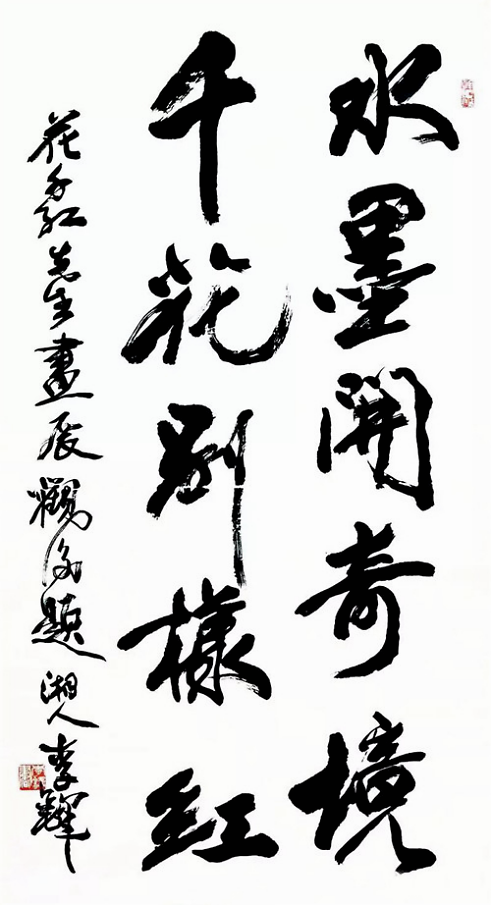 水墨開奇境
千花別樣紅
花千紅先生畫展觀后題 湘人李鐸